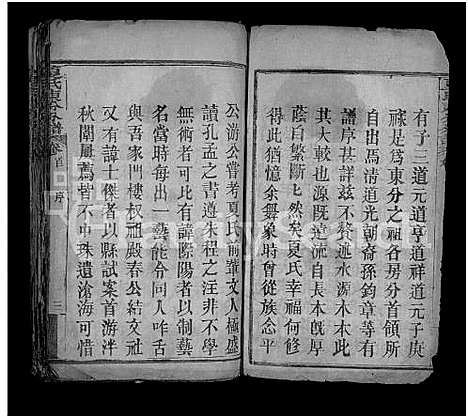 有子三道元道亨道祥道元子庚
祿是爲東分之祖各房分首領
自出焉清道光朝裔孫鈞章等有
譜序甚詳兹不贅述水源木本此
其大較也源既遠流自長本既厚
蔭自繁斷然矣夏氏幸福何修
而上此余舞象時曾從族念平
公游公嘗考夏氏前輩文人極盛
讀孔孟之書遵朱程之訓非不學
無術者可比有諱際陽者以制藝
名當時每出一藝能令同人咋舌
與吾家門樓權祖殿春公結文社
又有諱士傑者以縣試案首游泮
秋闈風薦皆不中珠遺滄海可惜
夏氏東分家譜 卷首 序 三